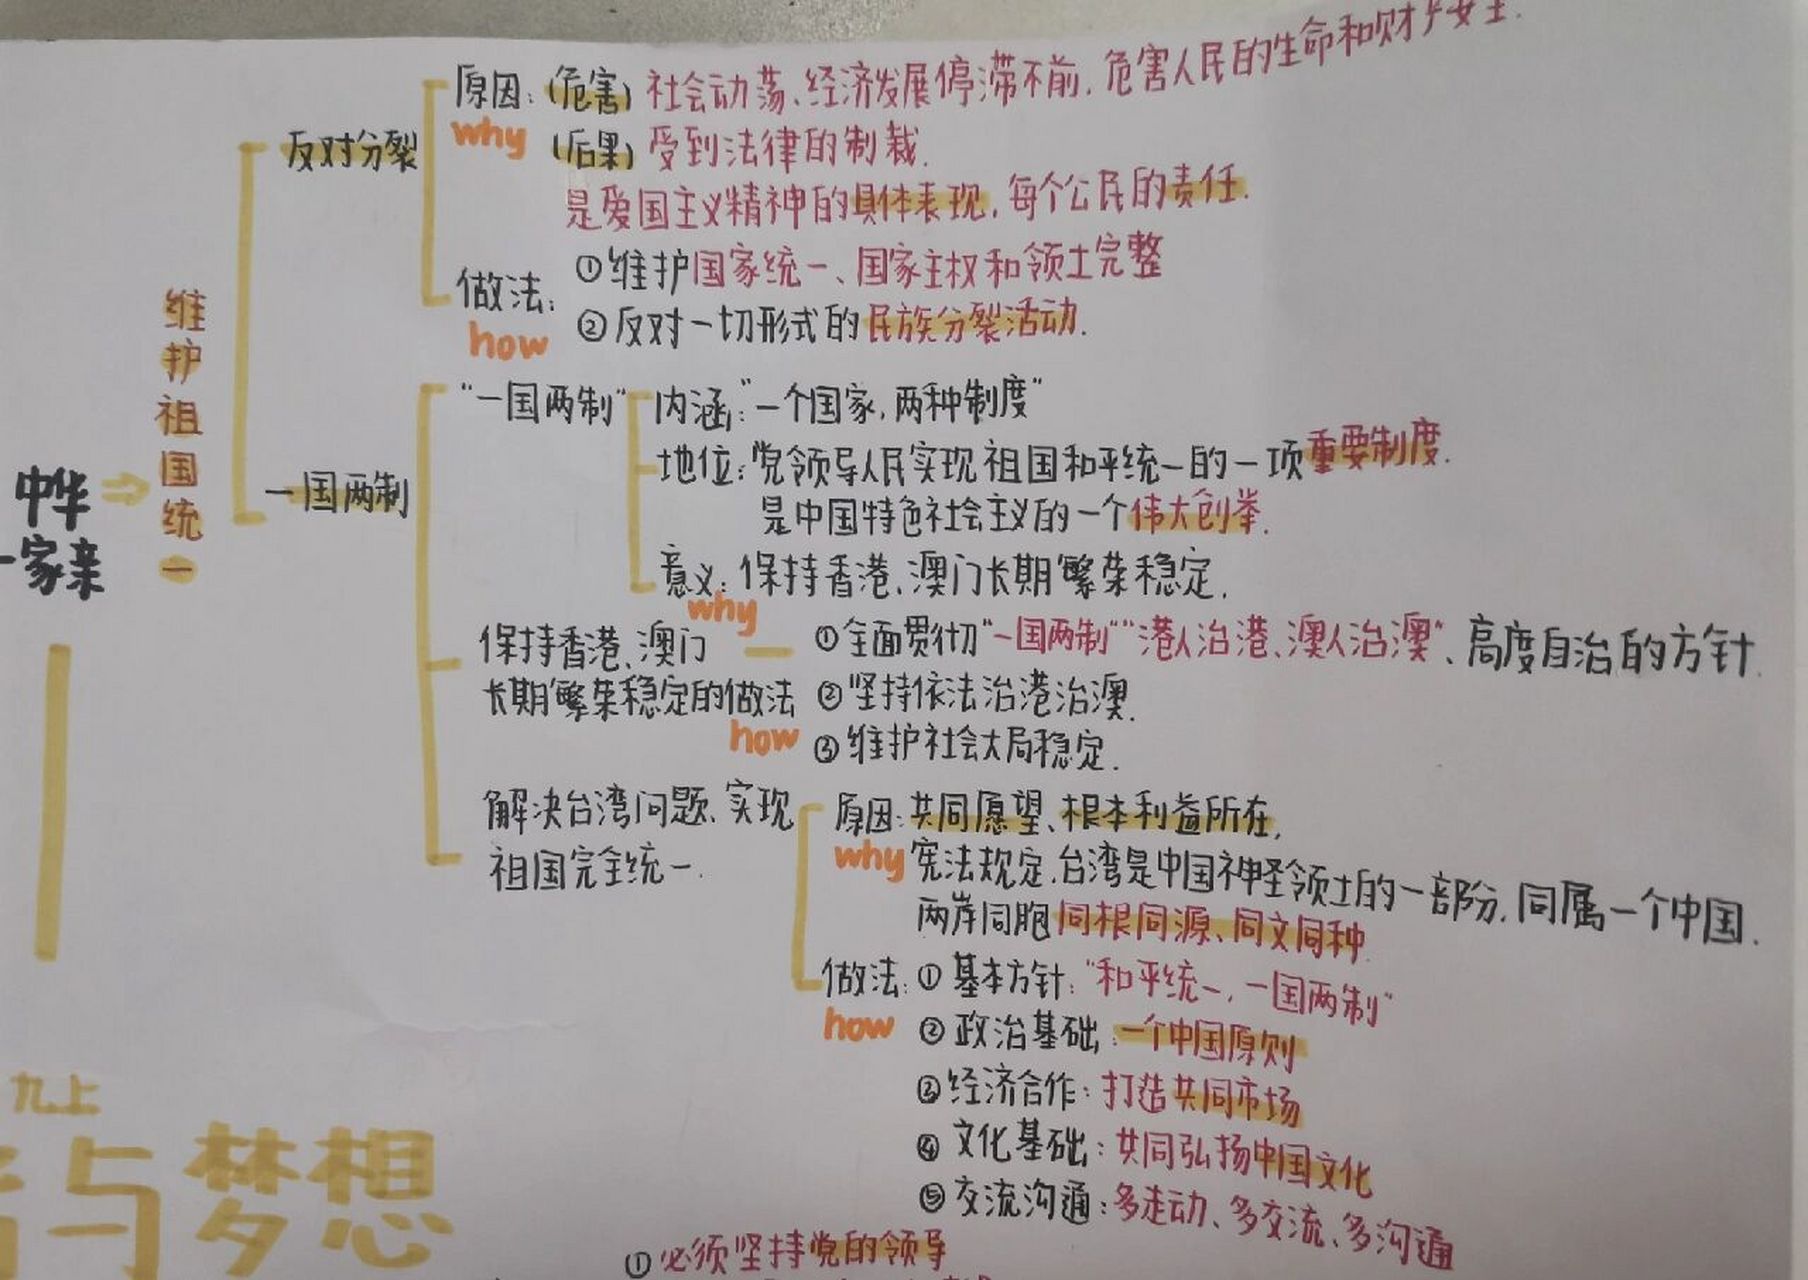 原因：(危害) 社会动荡、经济发展停滞不前，危害人民的生命和财产安全.
why (后果) 受到法律的制裁.
反对分裂
是爱国主义精神的具体表现，每个公民的责任.
做法： ①维护国家统一、国家主权和领土完整
how ②反对一切形式的民族分裂活动.
维护祖国统一
"一国两制" 内涵："一个国家，两种制度"
地位：党领导人民实现祖国和平统一的一项重要制度.
中华 一国两制 是中国特色社会主义的一个伟大创举.
一家亲
意义：保持香港、澳门长期繁荣稳定.
why
保持香港、澳门 ①全面贯彻"一国两制""港人治港、澳人治澳"、高度自治的方针.
长期繁荣稳定的做法 ②坚持依法治港治澳.
how ③维护社会大局稳定.
解决台湾问题、实现 原因：共同愿望、根本利益所在，
祖国完全统一. why 宪法规定，台湾是中国神圣领土的一部分，同属一个中国.
两岸同胞同根同源、同文同种
做法：①基本方针："和平统一，一国两制"
how ②政治基础：一个中国原则
③经济合作：打造共同市场
九上
④文化基础：共同弘扬中国文化
与梦想
⑤交流沟通：多走动、多交流、多沟通
①必须坚持党的领导